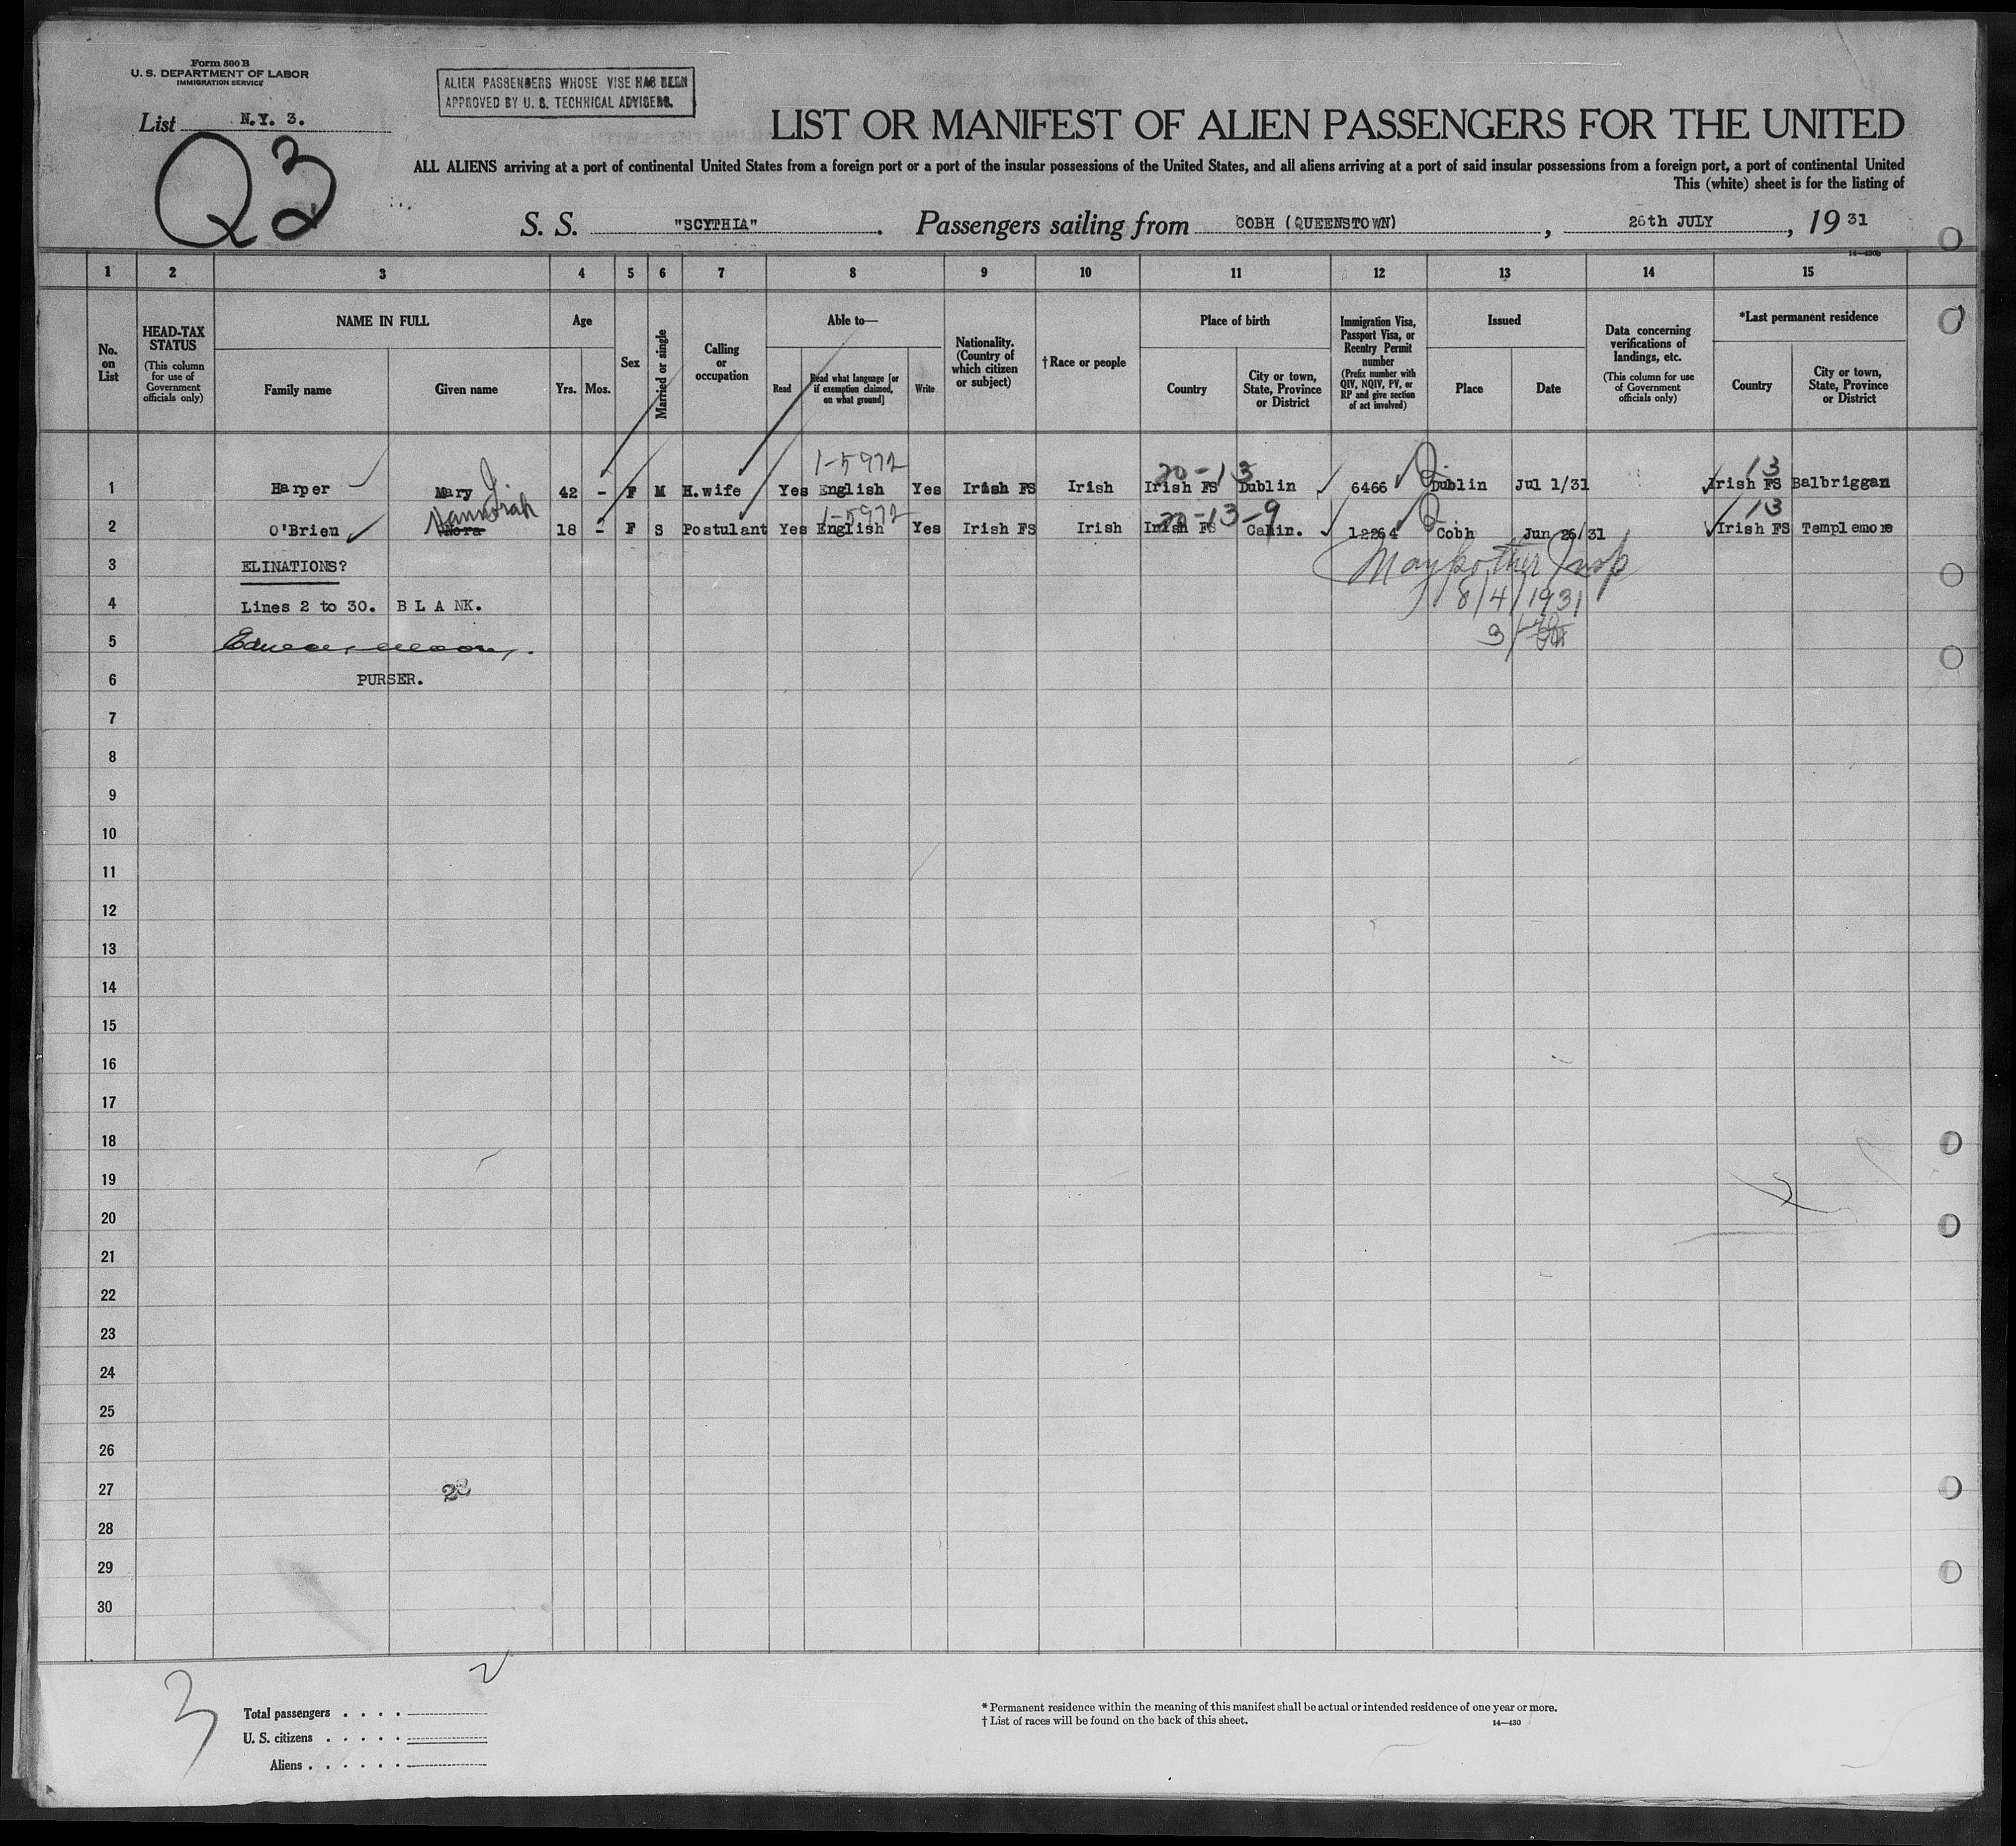 Form 500 B
U. S. DEPARTMENT OF LABOR
IMMIGRATION SERVICE
ALIEN PASSENGERS WHOSE VISE HAS BEEN
APPROVED BY U. S. TECHNICAL ADVISERS.
List N.Y. 3.
Q3
LIST OR MANIFEST OF ALIEN PASSENGERS FOR THE UNITED
ALL ALIENS arriving at a port of continental United States from a foreign port or a port of the insular possessions of the United States, and all aliens arriving at a port of said insular possessions from a foreign port, a port of continental United
This (white) sheet is for the listing of
S. S. "SCYTHIA". Passengers sailing from COBH (QUEENSTOWN), 26th JULY, 19 31
14—430b
1 2 3 4 5 6 7 8 9 10 11 12 13 14 15
No. on List
HEAD-TAX STATUS
(This column for use of Government officials only)
NAME IN FULL
Family name
Given name
Age
Yrs.
Mos.
Sex
Married or single
Calling or occupation
Able to—
Read
Read what language [or if exemption claimed, on what ground]
Write
Nationality. (Country of which citizen or subject)
† Race or people
Place of birth
Country
City or town, State, Province or District
Immigration Visa, Passport Visa, or Reentry Permit number
(Prefix number with QIV, NQIV, PV, or RP and give section of act involved)
Issued
Place
Date
Data concerning verifications of landings, etc.
(This column for use of Government officials only)
*Last permanent residence
Country
City or town, State, Province or District
1-5972 20-13 13
1 Harper Mary 42 - F M H.wife Yes English Yes Irish FS Irish Irish FS Dublin 6466 Dublin Jul 1/31 Irish FS Balbriggan
Hannorah 1-5972 20-13-9 13
2 O'Brien Nora 18 - F S Postulant Yes English Yes Irish FS Irish Irish FS Cahin. 12264 Cobh Jun 26/31 Irish FS Templemore
3 ELINATIONS?
Insp
4 Lines 2 to 30. B L A NK.
8/4/1931
5
6 PURSER.
7
8
9
10
11
12
13
14
15
16
17
18
19
20
21
22
23
24
25
26
27
28
29
30
3
2
Total passengers
U. S. citizens
Aliens
* Permanent residence within the meaning of this manifest shall be actual or intended residence of one year or more.
† List of races will be found on the back of this sheet.
14—430